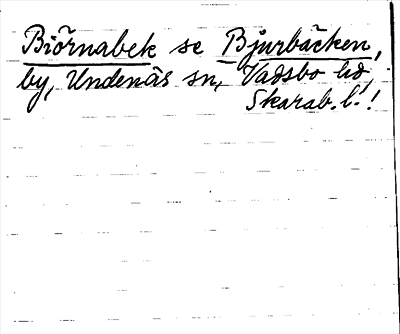 Biörnabek se Bjurbäcken,
by, Undenäs sn, Vadsbo hd,
Skarab. l.!